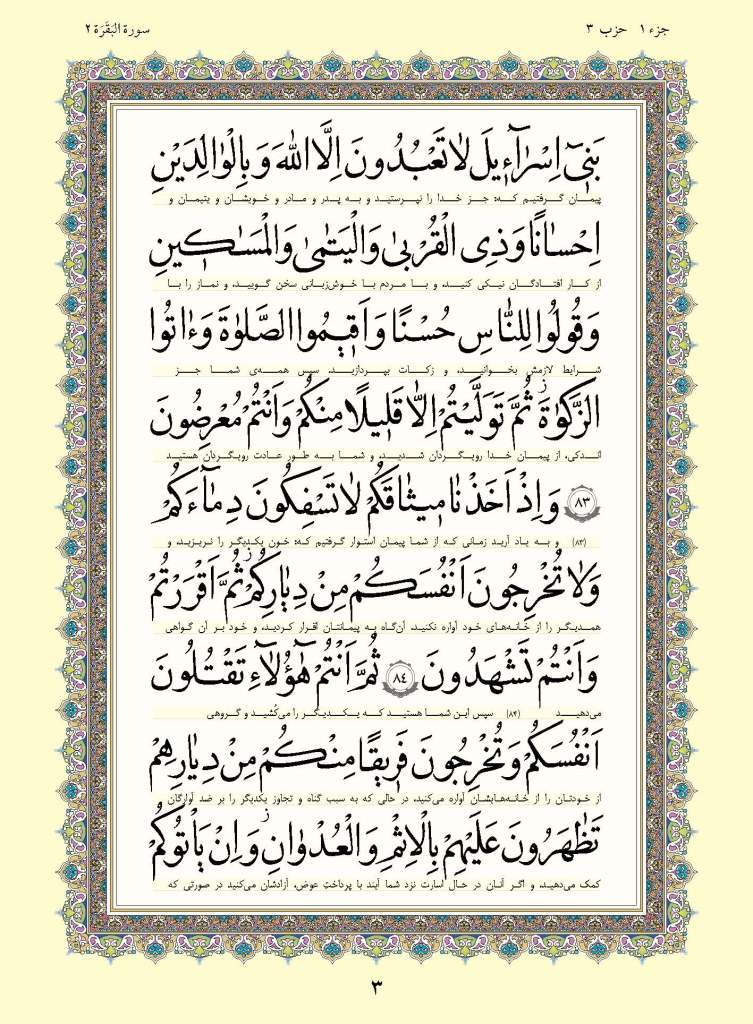 جزء ۱ حزب ۳ سورة البَقَرَة ۲
بَنٖٓى اِسْرَآءٖيلَ لَا تَعْبُدُونَ اِلَّا اللّٰهَ وَ بِالْوٰالِدَيْنِ
پیمان گرفتیم که: جز خدا را نپرستید و به پدر و مادر و خویشان و یتیمان و
اِحْسٰانًا وَ ذِى الْقُرْبىٰ وَالْيَتٰمىٰ وَالْمَسٰاكٖينِ
از کار افتادگان نیکی کنید، و با مردم با خوش‌زبانی سخن گویید، و نماز را با
وَ قُولُوا لِلنّٰاسِ حُسْنًا وَ اَقٖيمُوا الصَّلٰوةَ وَ ءٰاتُوا
شرایط لازمش بخوانید، و زکات بپردازید. سپس همه‌ی شما جز
الزَّكٰوةَ ز ثُمَّ تَوَلَّيْتُمْ اِلّٰا قَلٖيلًا مِنْكُمْ وَ اَنْتُمْ مُعْرِضُونَ
اندکی، از پیمان خدا رویگردان شدید، و شما به طور عادت رویگردان هستید
۸۳ وَ اِذْ اَخَذْنٰا مٖيثٰاقَكُمْ لٰا تَسْفِكُونَ دِمٰٓاءَكُمْ
(۸۳) و به یاد آرید زمانی که از شما پیمان استوار گرفتیم که: خون یکدیگر را نریزید، و
وَلٰا تُخْرِجُونَ اَنْفُسَكُمْ مِنْ دِيٰارِكُمْ ز ثُمَّ اَقْرَرْتُمْ
همدیگر را از خانه‌های خود آواره نکنید. آن‌گاه به پیمانتان اقرار کردید، و خود بر آن گواهی
وَ اَنْتُمْ تَشْهَدُونَ ۸٤ ثُمَّ اَنْتُمْ هٰٓؤُلَآءِ تَقْتُلُونَ
می‌دهید (۸۴) سپس این شما هستید که یکدیگر را می‌کُشید و گروهی
اَنْفُسَكُمْ وَ تُخْرِجُونَ فَرٖيقًا مِنْكُمْ مِنْ دِيٰارِهِمْ
از خودتان را از خانه‌هایشان آواره می‌کنید، در حالی که به سبب گناه و تجاوز یکدیگر را بر ضد آوارگان
تَظٰهَرُونَ عَلَيْهِمْ بِالْاِثْمِ وَ الْعُدْوٰانِ ز وَ اِنْ يَأْتُوكُمْ
کمک می‌دهید، و اگر آنان در حال اسارت نزد شما آیند با پرداختِ عوض، آزادشان می‌کنید در صورتی که
۳